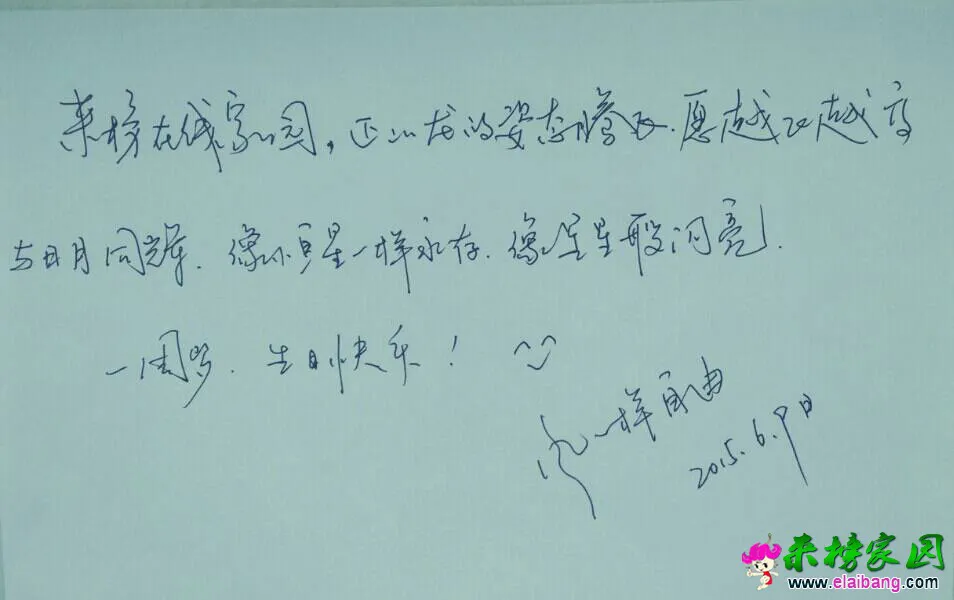 来榜在线家园,正以龙的姿态腾飞.愿越飞越高
与日月同辉.像恒星一样永存.像星星般闪亮.
一周岁.生日快乐!
风一样自由
2015.6.9日
来榜家园
www.elaibang.com